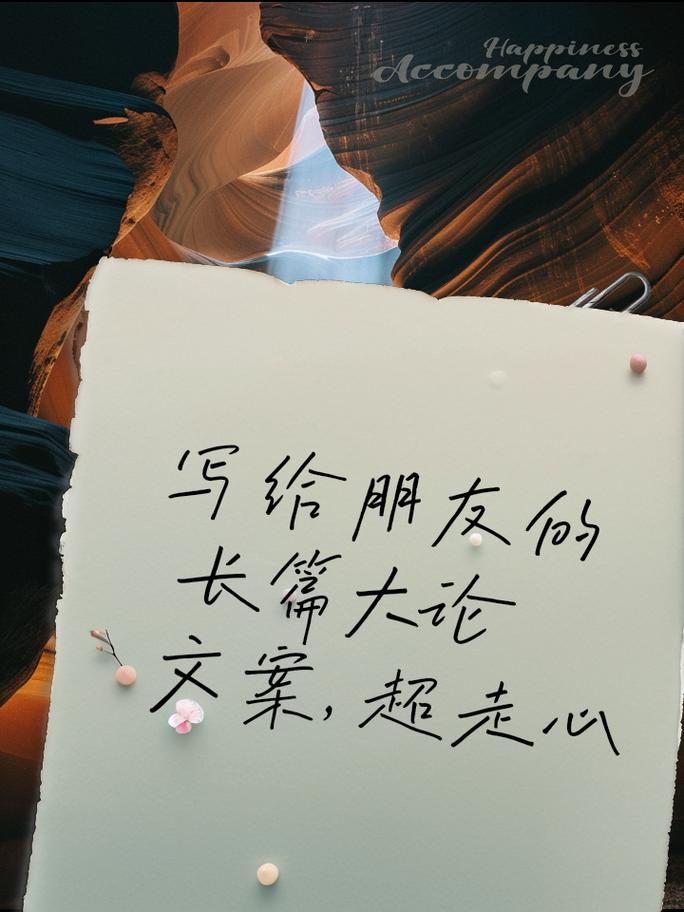 Happiness
Accompany
写给朋友的
长篇大论
文案，超走心